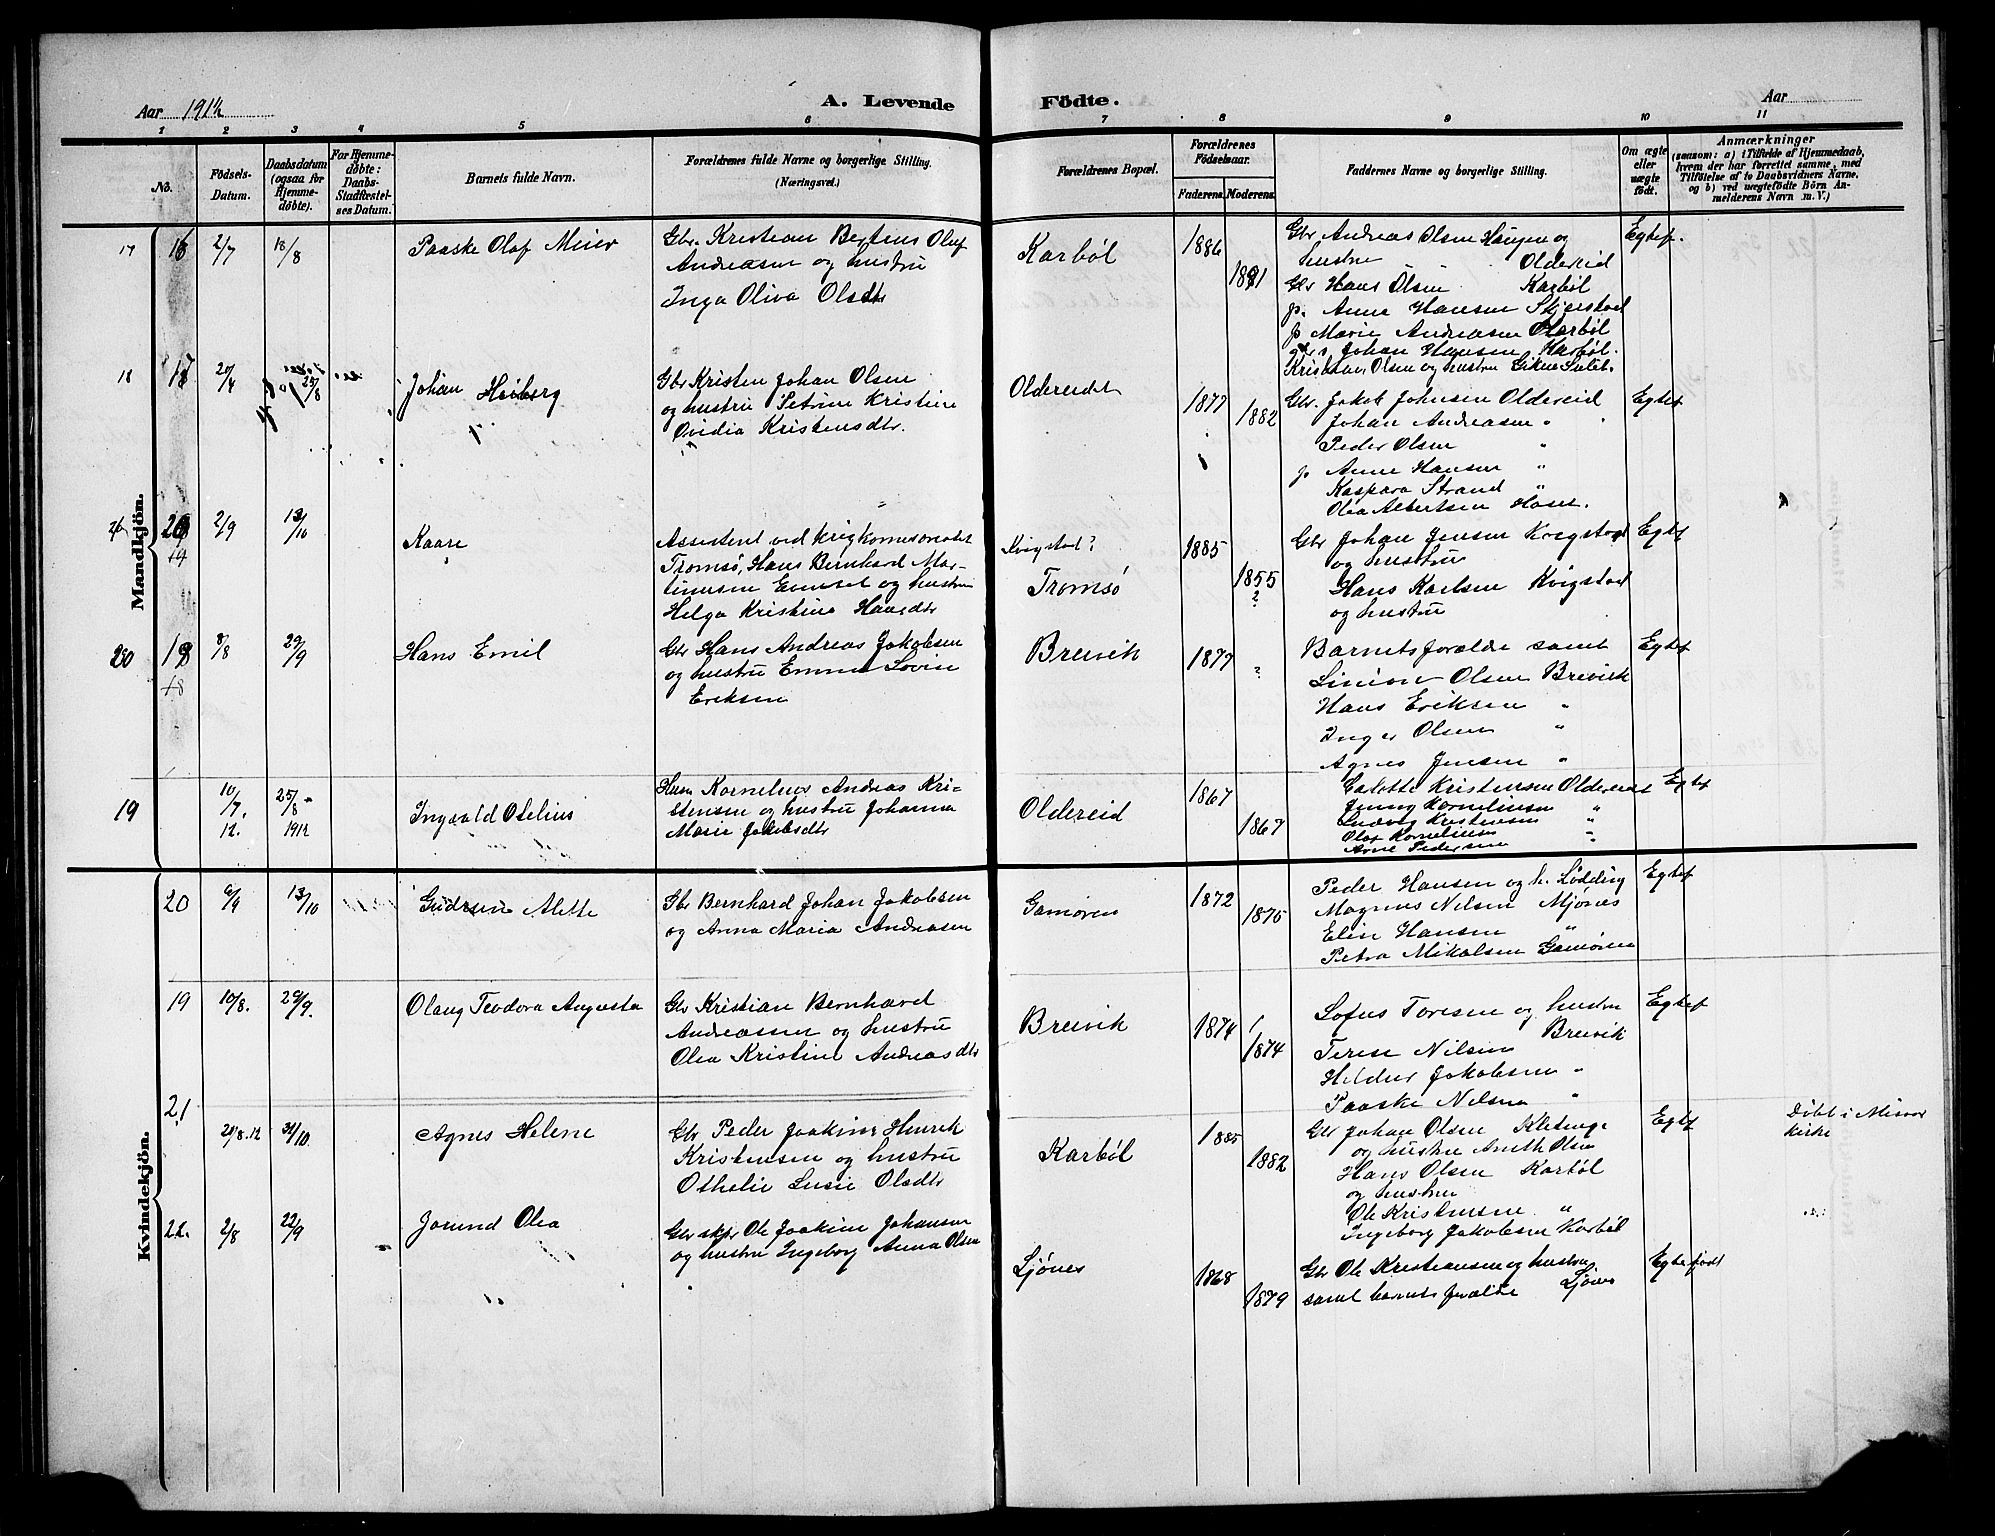 Aar 1912
A. Levende
Födte.
Aar
1
2
3
4
5
6
7
8
9
10
11
No.
Födsels-
Datum.
Daabsdatum
(ogsaa for
Hjemme-
döbte).
For Hjemme-
döbte:
Daabs-
Stadfæstel-
ses Datum.
Barnets fulde Navn.
Forældrenes fulde Navne og borgerlige Stilling.
(Næringsvei.)
Forældrenes Bopæl.
Forældrenes
Födselsaar.
Faderens.
Moderens.
Faddernes Navne og borgerlige Stilling.
Om ægte
eller
uægte
födt.
Anmærkninger
(saasom: a) i Tilfælde af Hjemmedaab,
hvem der har forrettet samme, med
Tilföielse af to Daabsvidners Navne,
og b) ved uægtefödte Börn An-
melderens Navn m. V.)
Mandkjön.
17
16
2/7
18/8
Paaske Olaf Meier
Gbr. Kristian Bertius Oluf
Andreasen og hustru
Inga Oliva Olsdtr
Karbøl
1886
1891
Gbr Andreas Olsen Haugen og
hustru Oldereid
Gbr Hans Olsen Karbøl
p. Anna Hansen Skjerstad
p Marie Andreasen Karbøl
Johan Hansen Karbøl.
Kristian Olsen og hustru
Egtef.
18
20/4
25/8
Johan Heiberg
Gbr Kristen Johan Olsen
og hustru Petrine Kristine
Ovidia Kristensdtr.
Oldereidet
1877
1882
Gbr. Jakob Johnsen Oldereid
Johan Andreasen "
Peder Olsen "
p Anne Hansen "
Kaspara Strand "
Olea Albertsen Hoset.
Egtef
2/9
13/10
Kaare
Assistent ved krigkomesoriatet
Tromsø, Hans Bernhard Mar-
tinusen Evenset og hustru
Helga Kristine Hansdtr
Kvigstad?
Tromsø
1885
1855
?
Gbr Johan Jensen Kvigstad
og hustru
Hans Karlsen Kvigstad
og hustru
Egtef
20
19
8/8
29/9
Hans Emil
Gbr Hans Andreas Jakobsen
og hustru Emma Lovise
Eriksen
Breivik
1877
?
Barnets forælde samt
Simon Olsen Breivik
Hans Eriksen "
Inger Olsen "
Agnes Jensen "
Egtef
19
10/7.
12.
25/8
1912
Ingvald Otelius
Husm Kornelius Andreas Kri-
stensen og hustru Johanna
Marie Jakobsdtr
Oldereid
1867
1867
Karlotte Kristensen Oldereid
Jenny Korneliusen "
Ludvig Kristensen "
Olaf Korneliusen "
Arne Pedersen
Egtef
Kvindekjön.
20
9/9
13/10
Gudrun Alette
Gbr Bernhard Johan Jakobsen
og Anna Maria Andreasen
Gamøren
1872
1875
Peder Hansen og h. Lødding
Magnus Nilsen Mjønes
Elin Hansen "
Petra Mikalsen Gamøren
Egtef
19
10/8.
29/9.
Olaug Teodora Augusta
Gbr Kristian Bernhard
Andreassen og hustru
Olea Kristine Andreasdtr
Breivik
1874
1874
Sofus Toresen og hustru
Breivik
Terese Nilsen
Hildur Jakobsen "
Paaske Nilsen "
Egtef
21
21/8.12
31/10
Agnes Helene
Gbr Peder Joakim Henrik
Kristensen og hustru
Othelie Lusie Olsdtr
Karbøl
1885
1882
Gbr Johan Olsen Kletunge
og hustru Anette Olsen
Hans Olsen Karbøl
og hustru
Ole Kristensen "
Ingeborg Jakobsen Karbøl
Egtef
Døbt i Misvær
kirke
22.
2/8
22/9
Jorund Olea
Gbr skpr Ole Joakim Johansen
og hustru Ingeborg Anna Olsen
Ljønes
1868
1879
Gbr Ole Kristiansen og hustru
samt barnets forælde Ljønes
Egtefødt